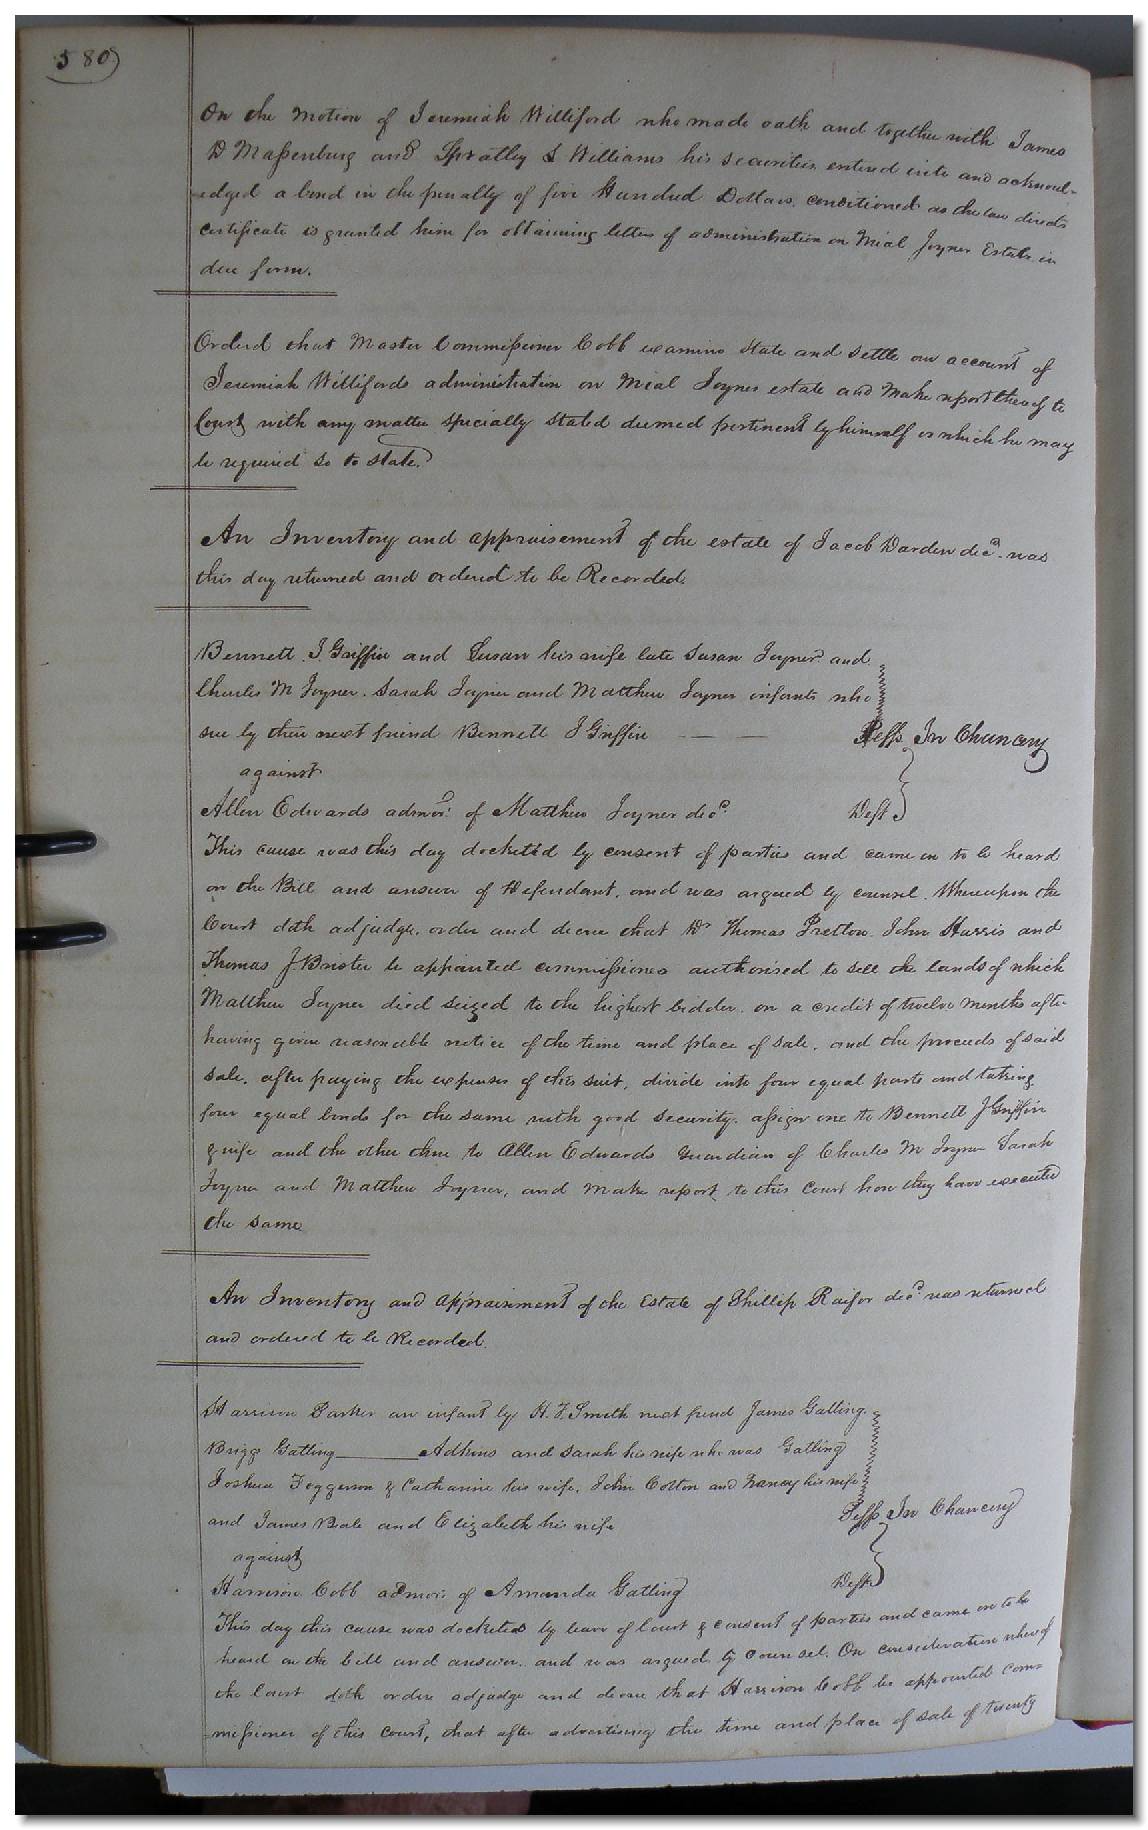 580
On the motion of Jeremiah Williford who made oath and together with James
D Maßenburg and Spratley S Williams his securities entered into and acknowl-
-edged a bond in the penalty of five Hundred Dollars, conditioned as the law directs
certificate is granted him for obtaining letters of administration on Mial Joyner Estate in
due form.
Orderd that Master Commißioner Cobb examine state and settle our account of
Jeremiah Willifords administration on Mial Joyner estate and make report thereof to
Court with any matter specially stated deemed pertinent by himself or which he may
be required so to state.
An Inventory and appraisement of the estate of Jacob Darden decd. was
this day returned and ordered to be Recorded.
Bennett J Griffin and Susan his wife late Susan Joyner and
Charles M Joyner. Sarah Joyner and Matthew Joyner infants who
sue by their next friend Bennett J Griffin
Plffs In Chancery
against
Allen Edwards admor. of Matthew Joyner decd.
Deft
This cause was this day docketed by consent of parties and came on to be heard
on the Bill and answer of Defendant, and was argued by counsel. Whereupon the
Court doth adjudge, order and decree that Dr Thomas Pretlow John Harris and
Thomas J Brister be appointed commißioners authorised to sell the lands of which
Matthew Joyner died seized to the highest bidder on a credit of twelve months after
having given reasonable notice of the time and place of sale, and the proceeds of said
sale, after paying the expenses of this suit, divide into four equal parts and taking
four equal bonds for the same with good security, aßign one to Bennett J Griffin
& wife and the other three to Allen Edwards Guardian of Charles M Joyner Sarah
Joyner and Matthew Joyner, and make report to this Court how they have executed
the same
An Inventory and appraisement of the Estate of Phillip Raifor decd. was returned
and ordered to be Recorded.
Harrison Barker an infant by H. F. Smith next friend James Gatling.
Briggs Gatling Adkins and Sarah his wife who was Gatling
Joshua Foggerson & Catharine his wife, John Cotton and Nancy his wife
and James Beale and Elizabeth his wife
Plffs In Chancery
against
Harrison Cobb admor. of Amanda Gatling
Deft
This day this cause was docketed by leave of Court & consent of parties and came on to be
heard on the bill and answer. and was argued by Counsel. On consideration whereof
the Court doth order adjudge and decree that Harrison Cobb be appointed Com-
-mißioner of this Court, that after advertising the time and place of sale of twenty